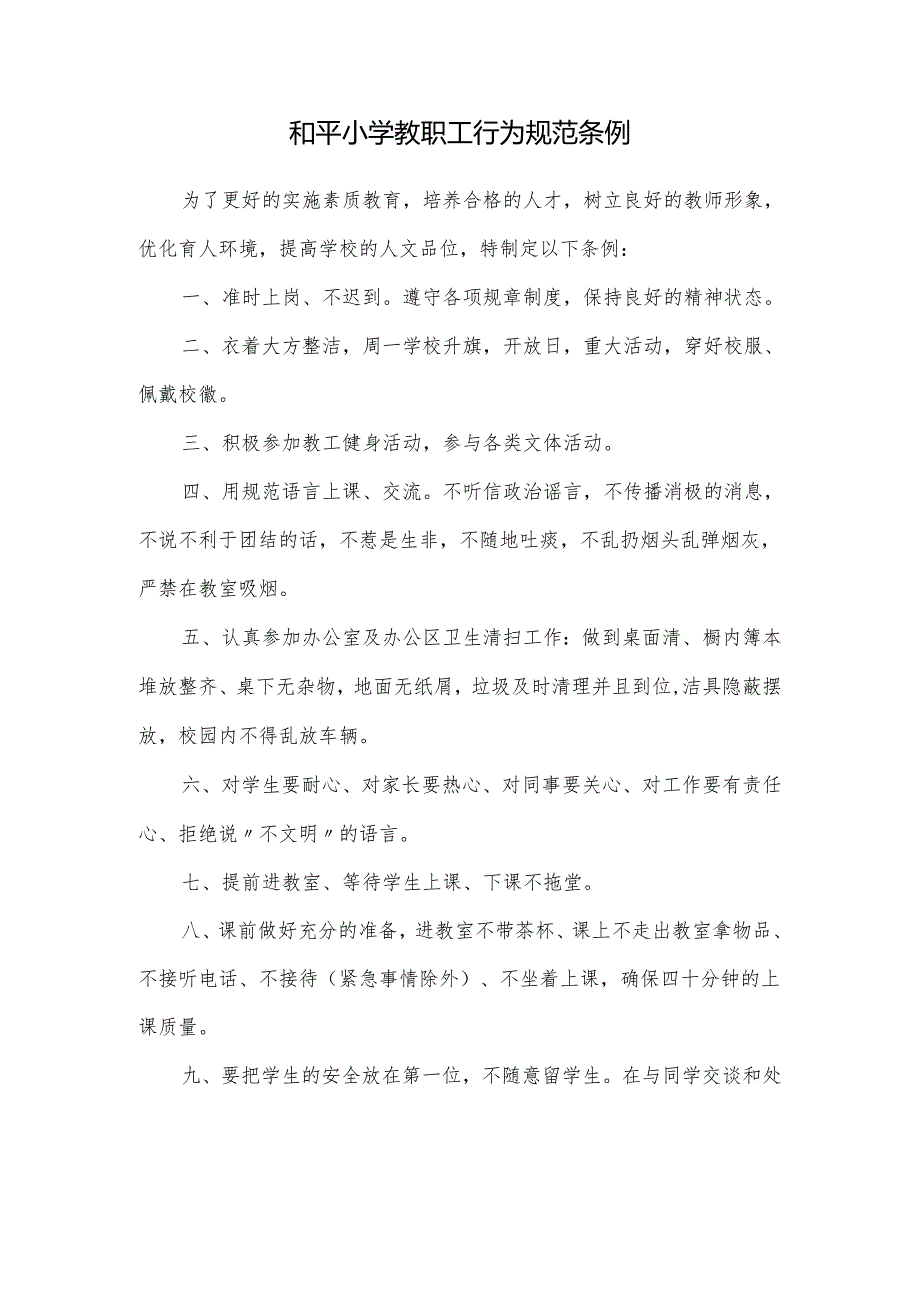 和平小学教职工行为规范条例
为了更好的实施素质教育，培养合格的人才，树立良好的教师形象，
优化育人环境，提高学校的人文品位，特制定以下条例：
一、准时上岗、不迟到。遵守各项规章制度，保持良好的精神状态。
二、衣着大方整洁，周一学校升旗，开放日，重大活动，穿好校服、
佩戴校徽。
三、积极参加教工健身活动，参与各类文体活动。
四、用规范语言上课、交流。不听信政治谣言，不传播消极的消息，
不说不利于团结的话，不惹是生非，不随地吐痰，不乱扔烟头乱弹烟灰，
严禁在教室吸烟。
五、认真参加办公室及办公区卫生清扫工作：做到桌面清、橱内簿本
堆放整齐、桌下无杂物，地面无纸屑，垃圾及时清理并且到位,洁具隐蔽摆
放，校园内不得乱放车辆。
六、对学生要耐心、对家长要热心、对同事要关心、对工作要有责任
心、拒绝说〃不文明〃的语言。
七、提前进教室、等待学生上课、下课不拖堂。
八、课前做好充分的准备，进教室不带茶杯、课上不走出教室拿物品、
不接听电话、不接待（紧急事情除外）、不坐着上课，确保四十分钟的上
课质量。
九、要把学生的安全放在第一位，不随意留学生。在与同学交谈和处